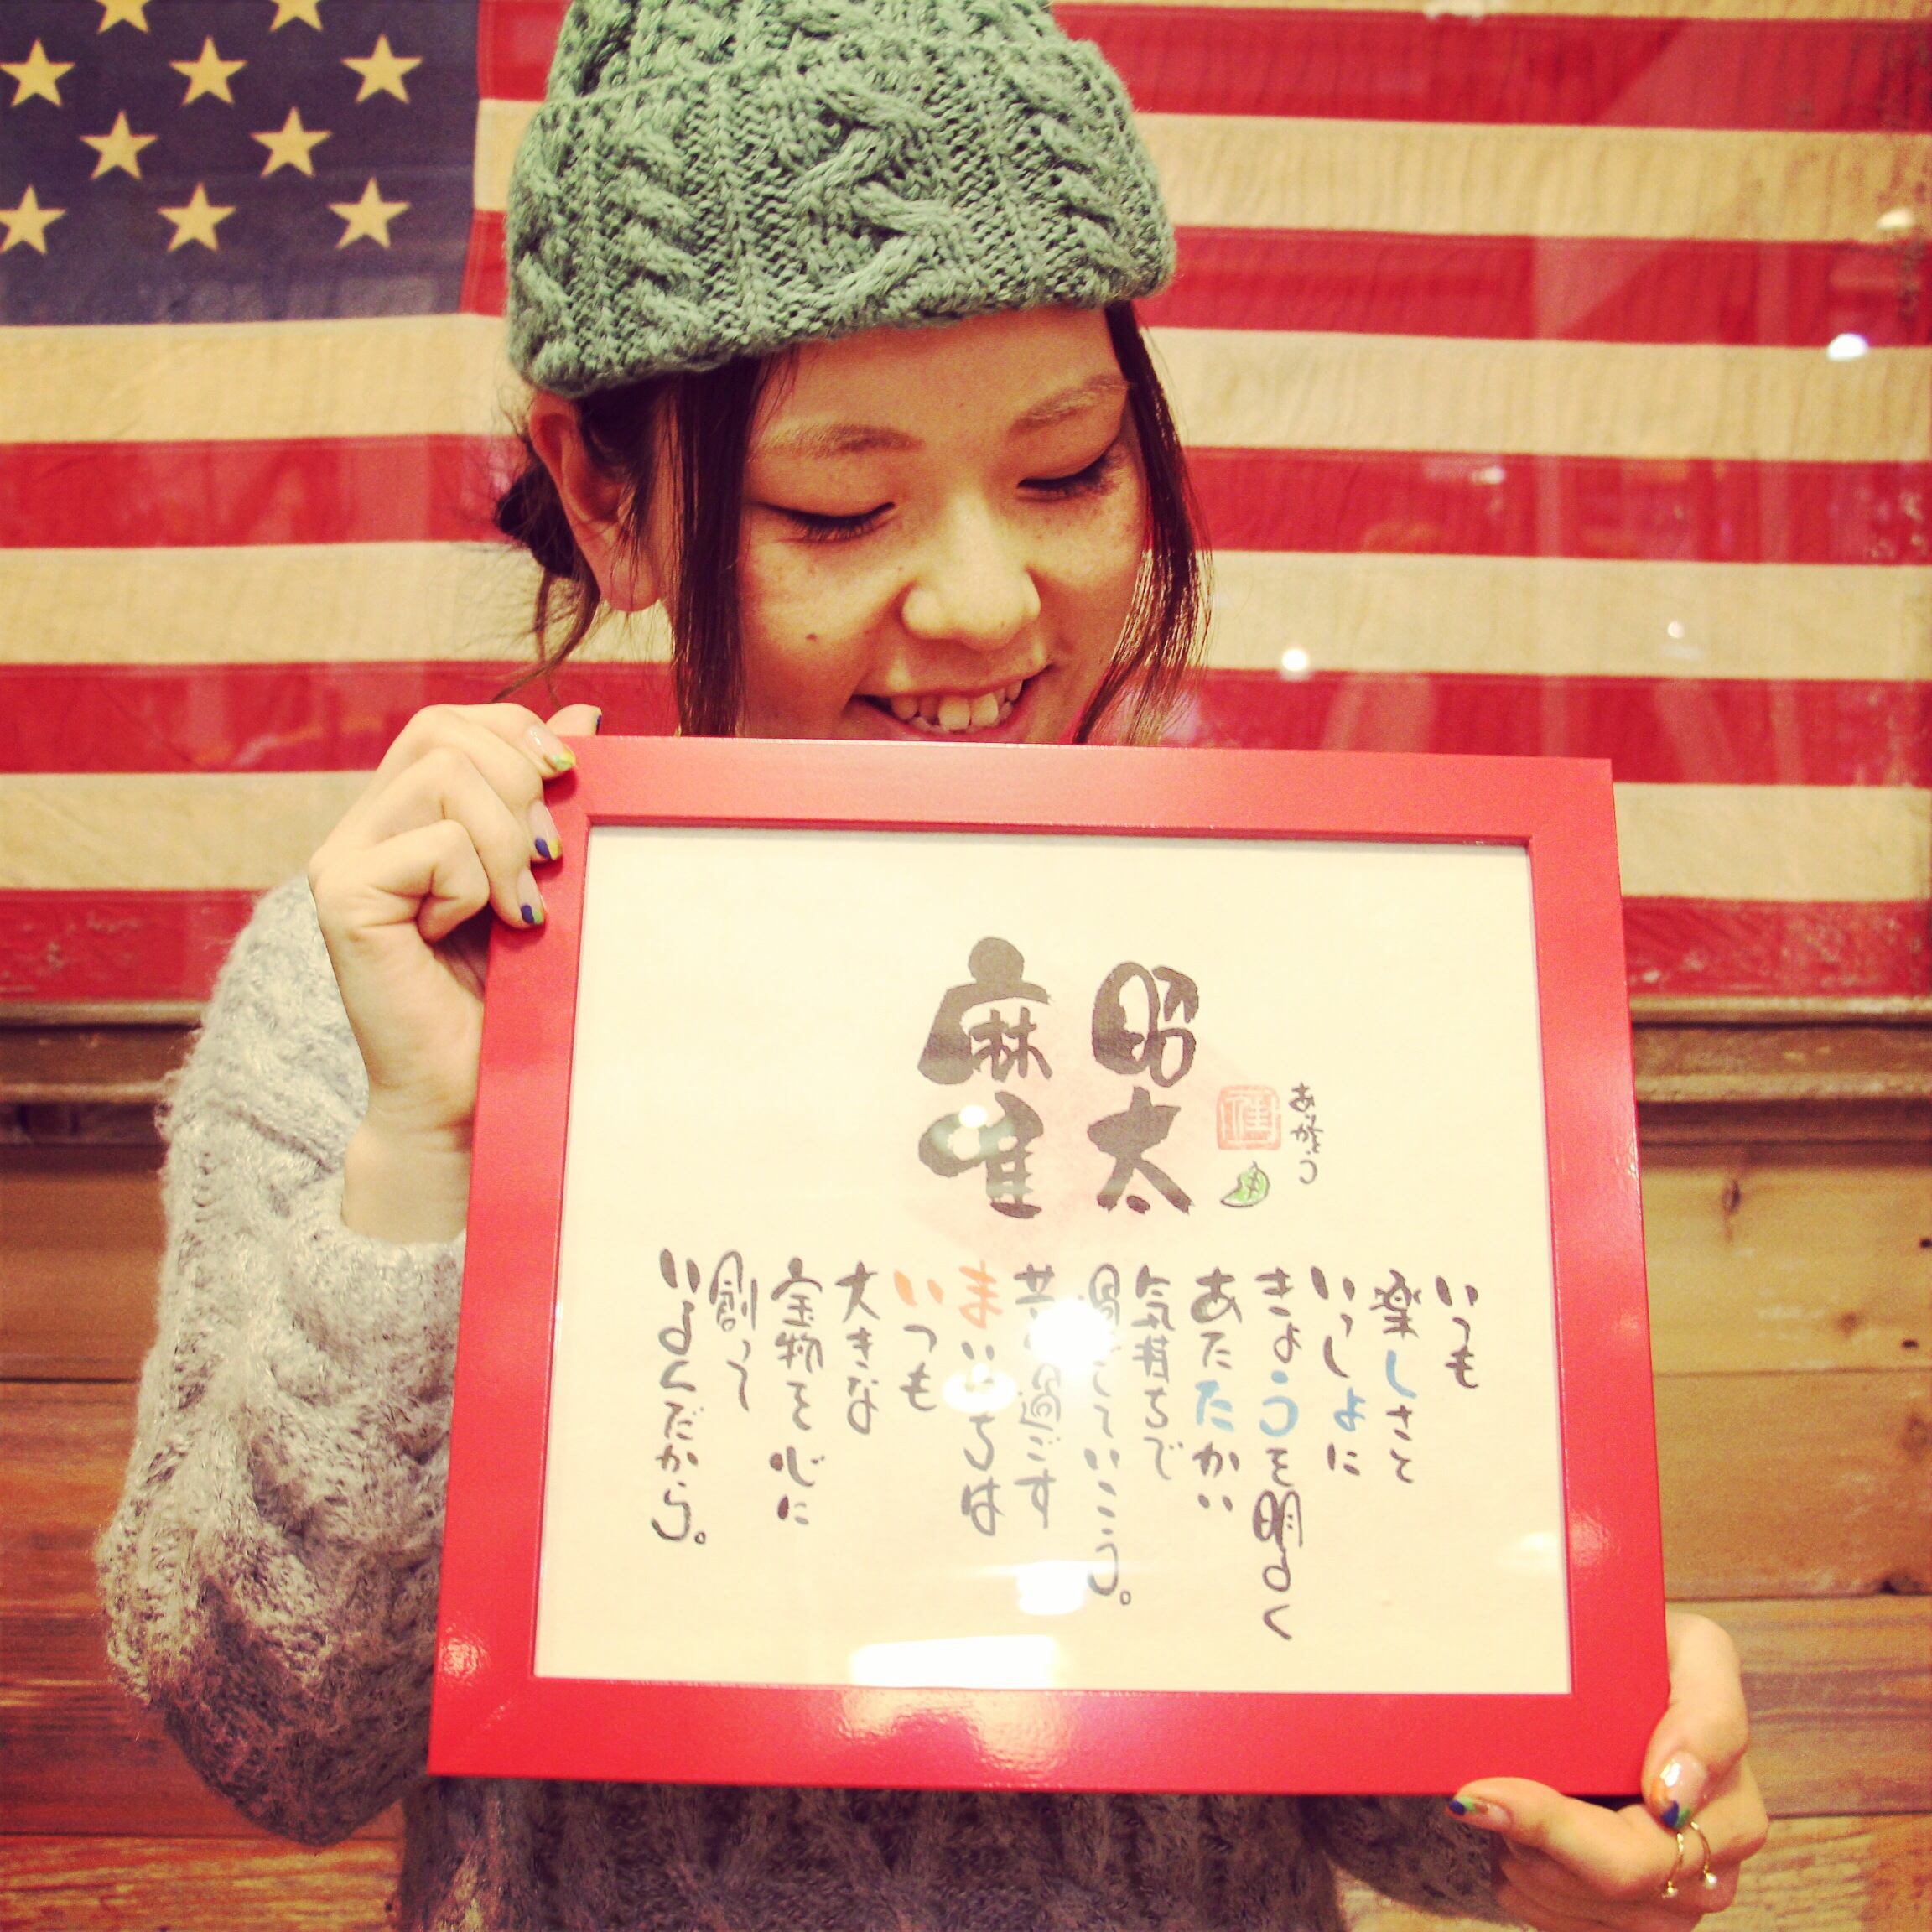 昭太
麻唯
いつも
楽しさと
いっしょに
きょうを明るく
あたたかい
気持ちで
過ごしていこう。
共に過ごす
まいにちは
いつも
大きな
宝物を心に
創って
いるんだから。